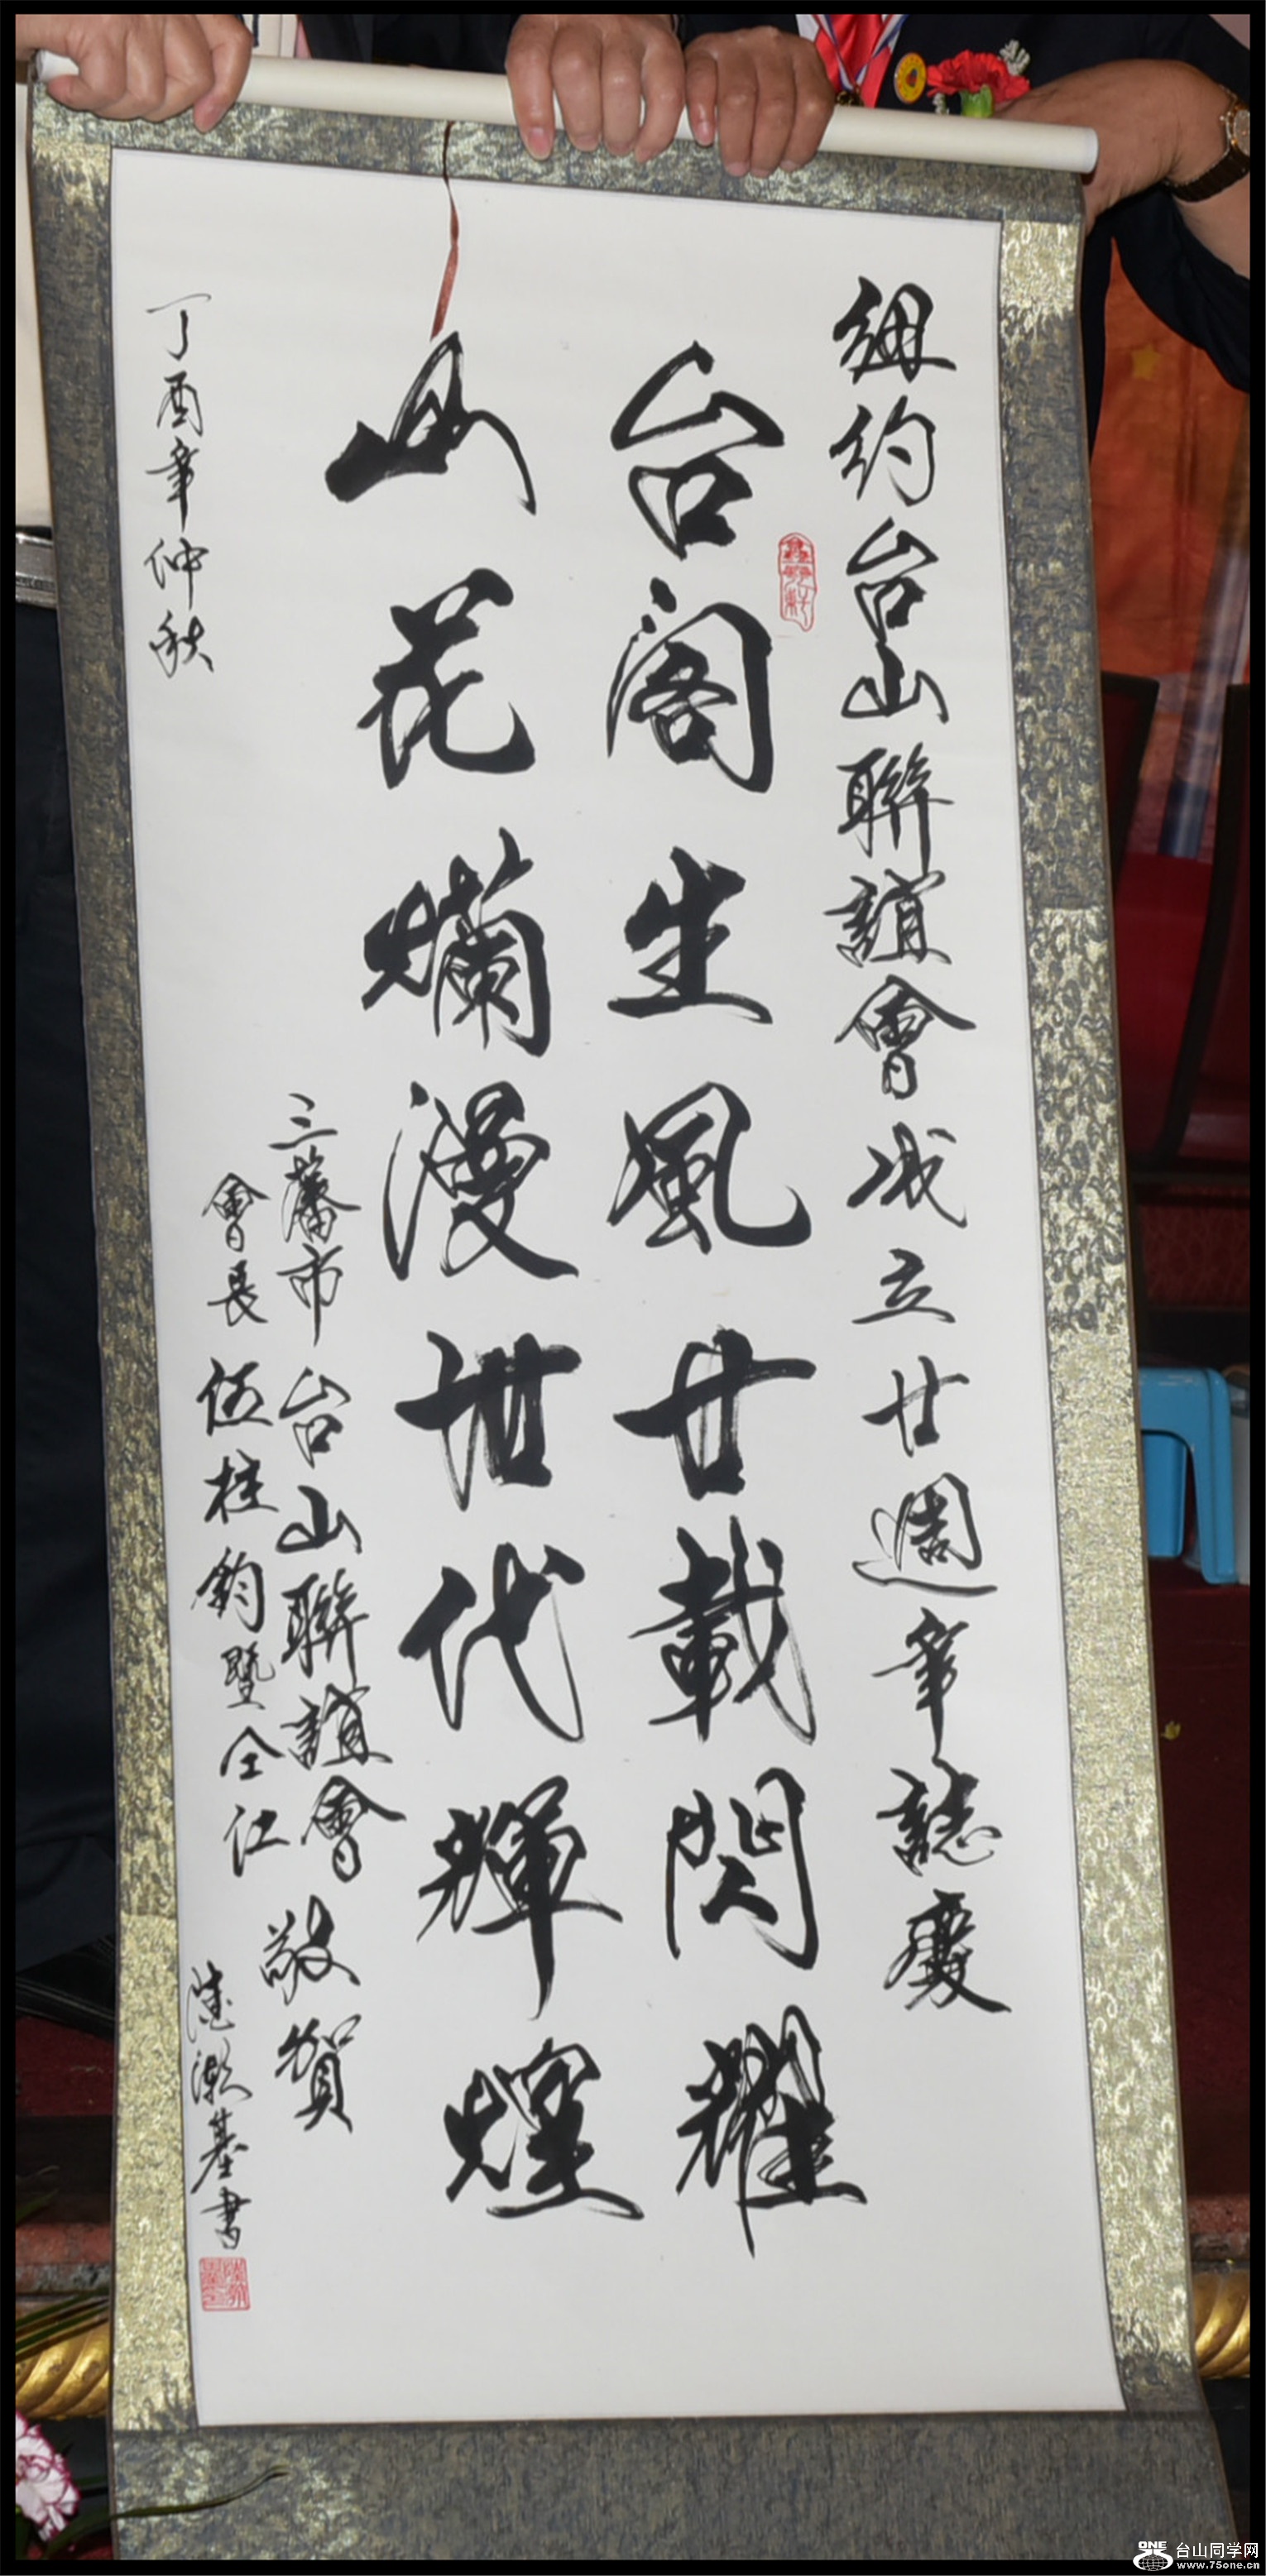 紐約台山聯誼會成立廿週年誌慶
台閣生風廿載閃耀
山花爛漫世代輝煌
三藩市台山聯誼會敬賀
會長伍柱鈞暨仝仁
丁酉年仲秋
基書
ONE
台山同学网
www.75one.cn